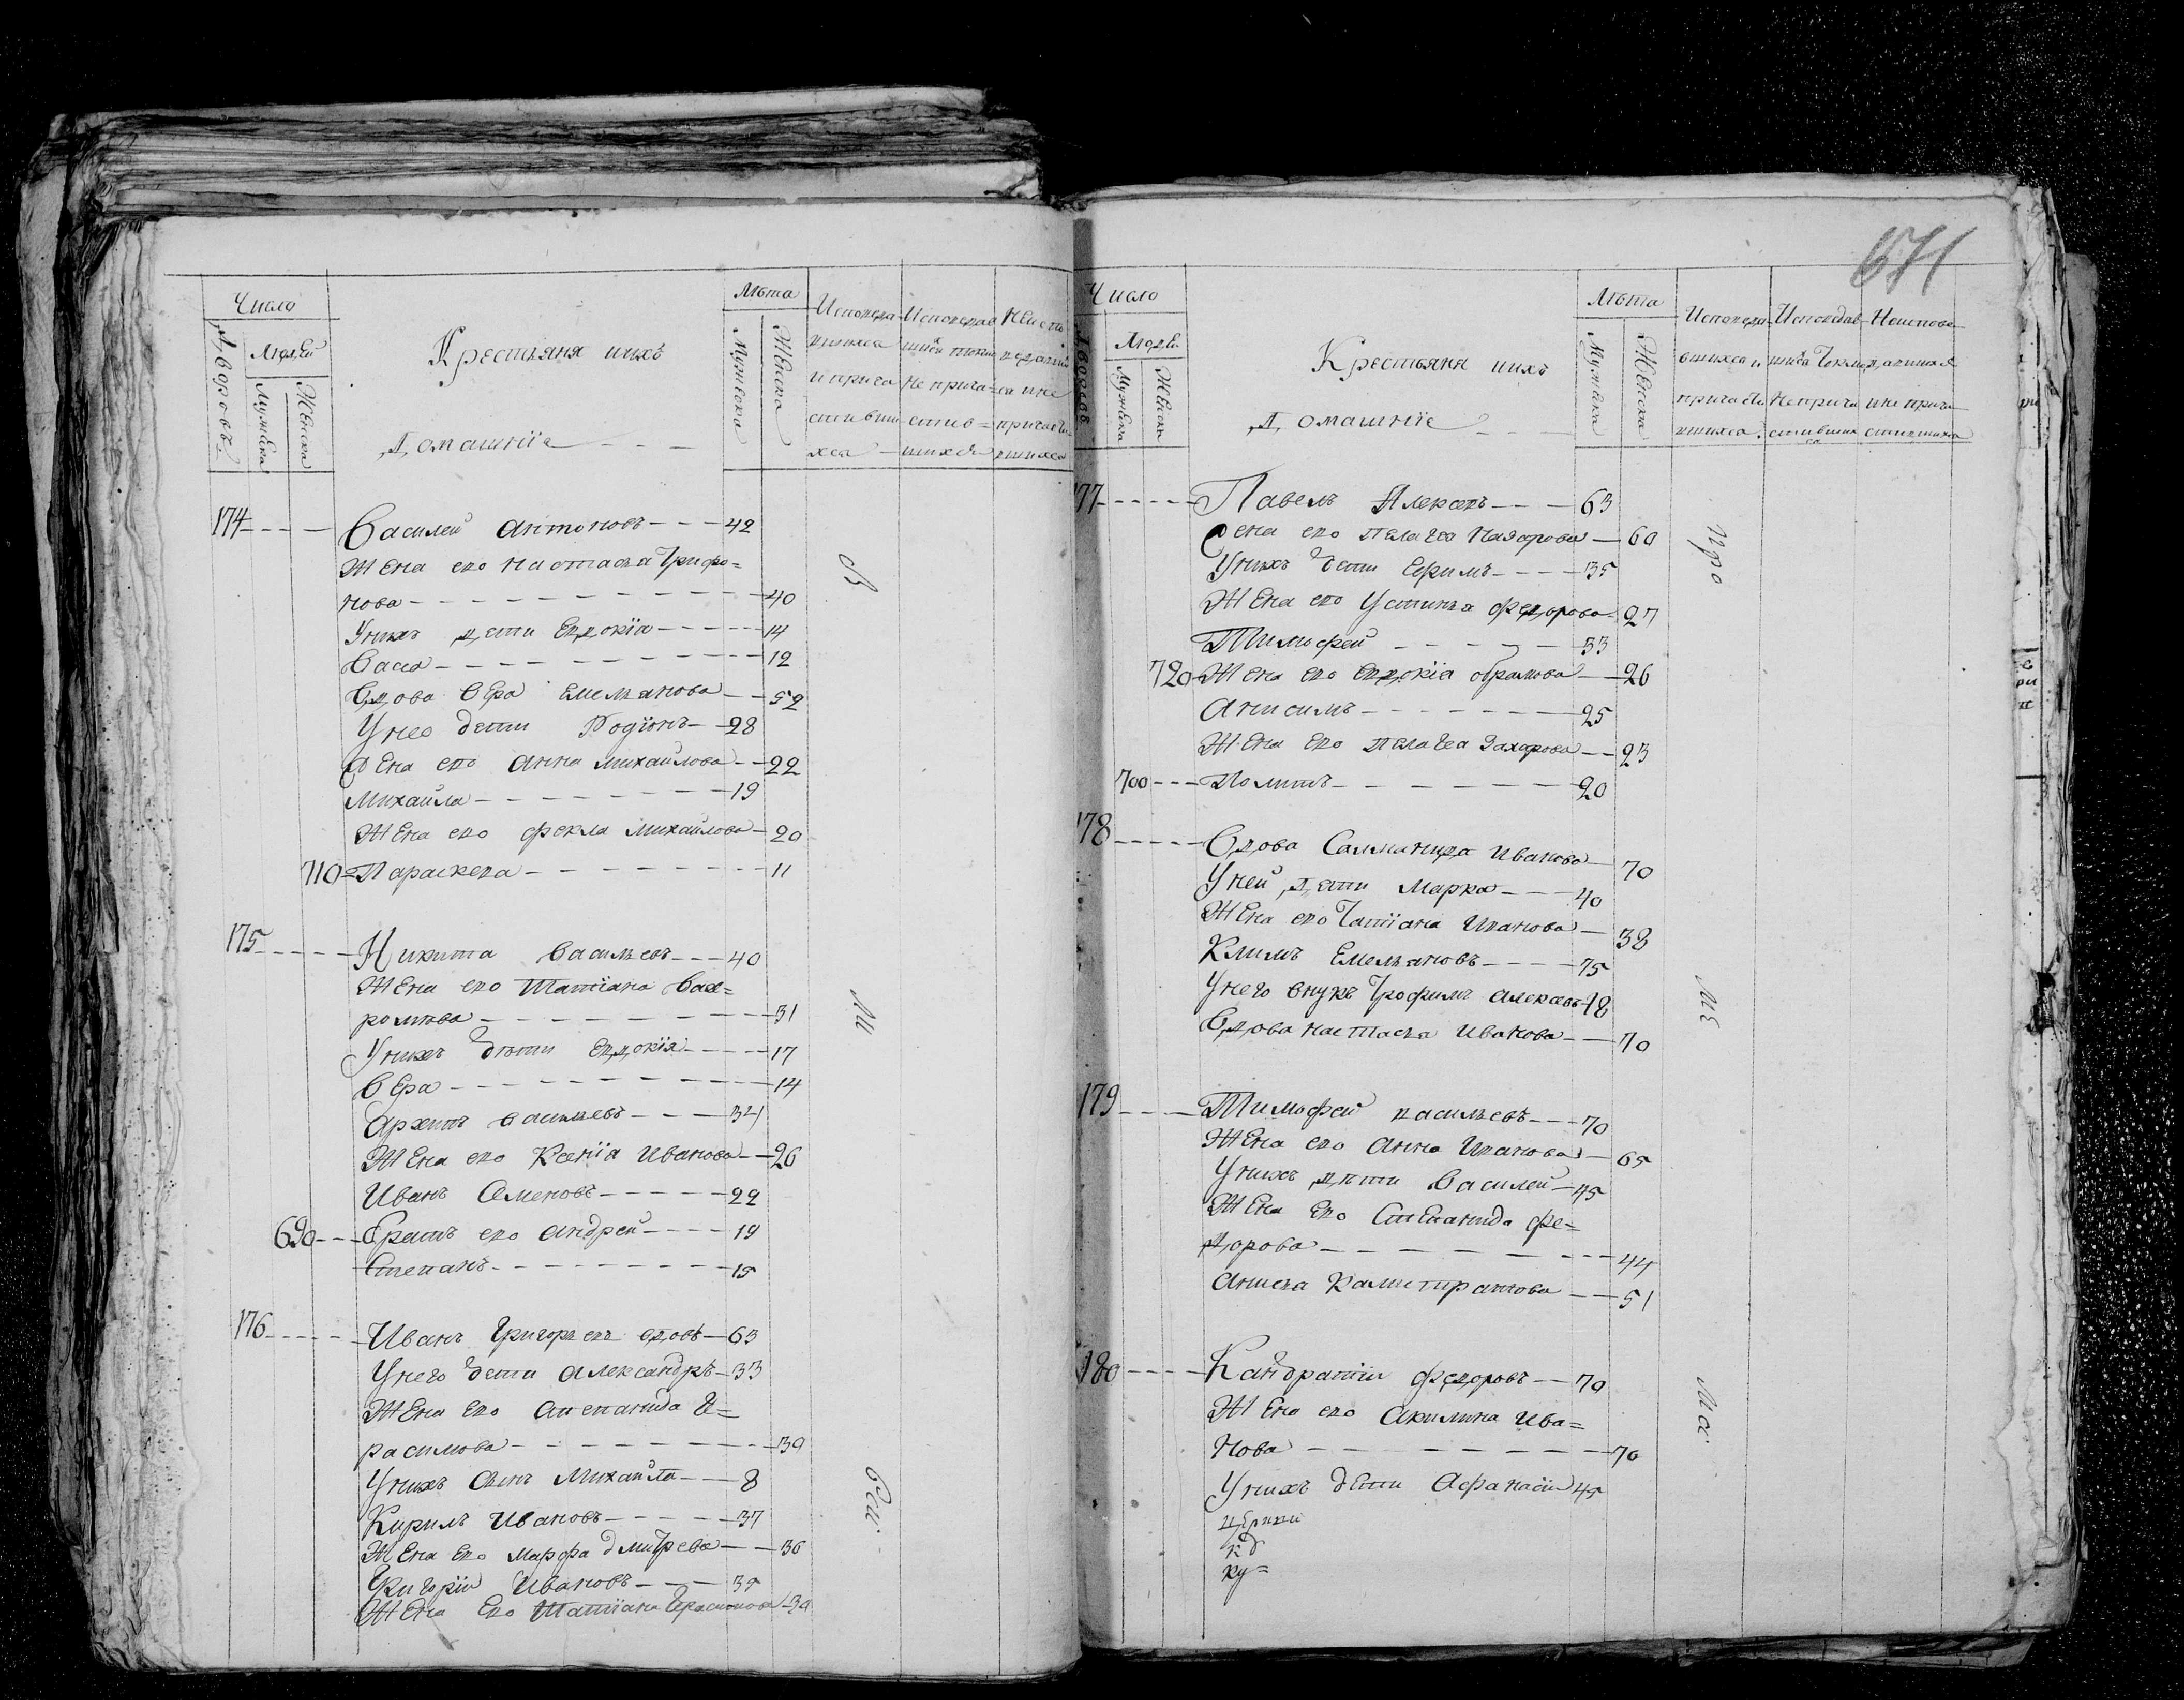 Число
Лѣта
Дворовъ
Людей
Мужеска
Женска
Крестьяня и ихъ
Домашнїе
Мужеска
Женска
Исповеда-
вшихся
и прича
стивши
хся
Исповедав
шихся токмо
не прича=
стив=
шихся
Неиспо
ведавши
ся и не
причасти
вшихся
174 Василей Антоновъ 42
Жена его Настасья Трифо=
нова 40
У нихъ дети Евдокїа 14
Васса 12
Вдова Вера Емельянова 52
У нее дети Родїонъ 28
Жена его Анна Михайлова 22
Михайла 19
Жена его Фекла Михайлова 20
710 Параскева 11
175 Никита Васильевъ 40
Жена его Татїана Вах=
ромѣва 31
У нихъ дѣти Евдокїя 17
Вера 14
Архипъ Васильевъ 34
Жена его Ксенїя Иванова 26
Иванъ Семеновъ 22
690 Братъ его Андрей 19
Степанъ 15
176 Иванъ Григорьевъ вдовъ 63
У него дети Александръ 33
Жена его Степанида Ге=
расимова 30
У нихъ сынъ Михайла 8
Кирилъ Ивановъ 37
Жена его Марфа Дмитрева 36
Григорїи Ивановъ 35
Жена его Татїана Герасимова 30
671
Число
Лѣта
Дворовъ
Людей
Мужеска
Женска
Крестьяня и ихъ
Домашнїе
Мужеска
Женска
Исповеда-
вшихся и
причасти
вшихся
Исповедав
шися токмо
не прича
стивших
ся
Неиспове
давшихся
и не прича
стившихся
177 Павелъ Алексевъ 63
Жена его Пелагея Назарова 60
У нихъ дети Ефимъ 35
Жена его Устинья Федорова 27
Тимофей 33
720 Жена его Евдокїа Абрамова 26
Анисимъ 25
Жена его Пелагея Захарова 23
700 Политъ 20
178 Вдова Саламанида Иванова 70
У ней дети Марка 40
Жена его Татїана Иванова 38
Климъ Емельяновъ 75
У него внукъ Трофимъ Алексевъ 18
Вдова Настасья Иванова 70
179 Тимофей Васильевъ 70
Жена его Анна Иванова 65
У нихъ дѣти Василей 45
Жена его Степанида Фе=
дорова 44
Анисья Калистратова 51
180 Кандратїи Федоровъ 70
Жена его Акилина Ива=
нова 70
У нихъ дети Афанасїи 45